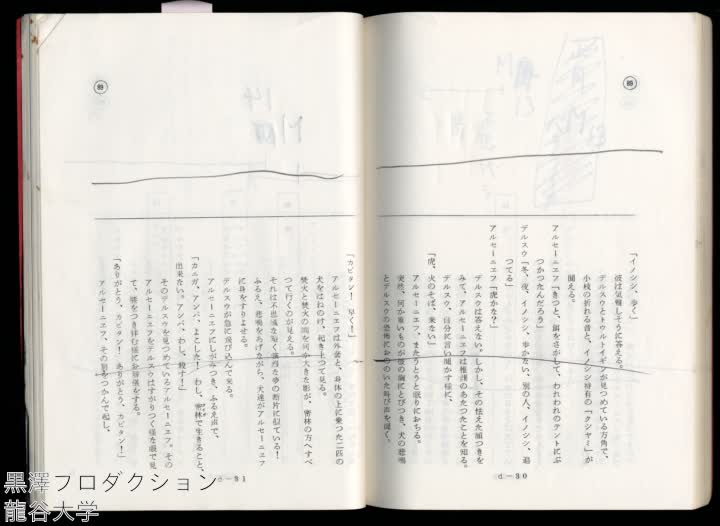 「イノシシ、歩く」
彼は気難しそうに答える。
デルスウとトゥルトイギンが見つている方角で、
小枝の折れる音と、イノシシ特有の「クシャミ」が
聞える。
アルセーニエフ「きつと、餌をさがして、われわれのテントにぶ
つかつたんだろう」
デルスウ「冬、夜、イノシシ、歩かない、別の人、イノシシ、追
つてる」
アルセーニエフ「虎かな？」
デルスウは答えない。しかし、その怯えた顔つきを
みて、アルセーニエフは推測のあたつたことを知る。
デルスウ、自分に言い聞かす様に、
「虎、火のそば、来ない」
アルセーニエフ、またうとうと眠りにおちる。
突然、何か重いものが彼の胸にとびつき、犬の悲鳴
とデルスウの恐怖におののいた叫び声を聞く。
d—30
「カピタン！ 早く！」
アルセーニエフは外套と、身体の上に乗つた二匹の
犬をはねのけ、起き上つて見る。
焚火と焚火の間を何か大きた影が、密林の方へすべ
つて行くのが見える。
それは不思議な短く強烈な夢の断片に似ている！
ふるえ、悲鳴をあげながら、犬達がアルセーニエフ
に身をすりよせる。
デルスウが急に飛び込んで来る。
アルセーニエフにしがみつき、ふるえ声で、
「カニガ、アンバ、よこした！ わし、密林で生きること、
出来ない。アンバ、わし、殺す！」
そのデルスウを見つめているアルセーニエフ。その
アルセーニエフをデルスウはすがりつく様な眼で見
て、彼をつき拝む様にお辞儀をする。
「ありがとう、カピタン！ ありがとう、カピタン！」
アルセーニエフ、その肩をつかんで起し、
d—31
89
89
黒澤プロダクション
龍谷大学